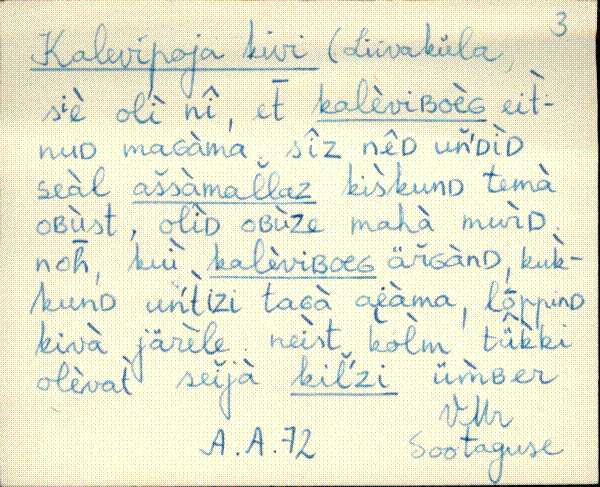 3
Kalevipoja kivi (Liivaküla,
siè olì nî, ēt kalèviʙoèɢ eìt-
nuᴅ maɢàma. sîz nêᴅ uńᴅìᴅ
seàl aššàmallaz kiskunᴅ temà
oʙùst, olìᴅ oʙùze mahà murìᴅ.
noh̄, kuì kalèviʙoeɢ äřɢànᴅ, kuk̀-
kunᴅ uńtizi taɢà aèàma, lõppinᴅ
kivà järèle. neìst kòlm tük̀ki
olèvat seìjà kil'zi üm̀ʙer
V.Mr
A.A.72 Sootaguse